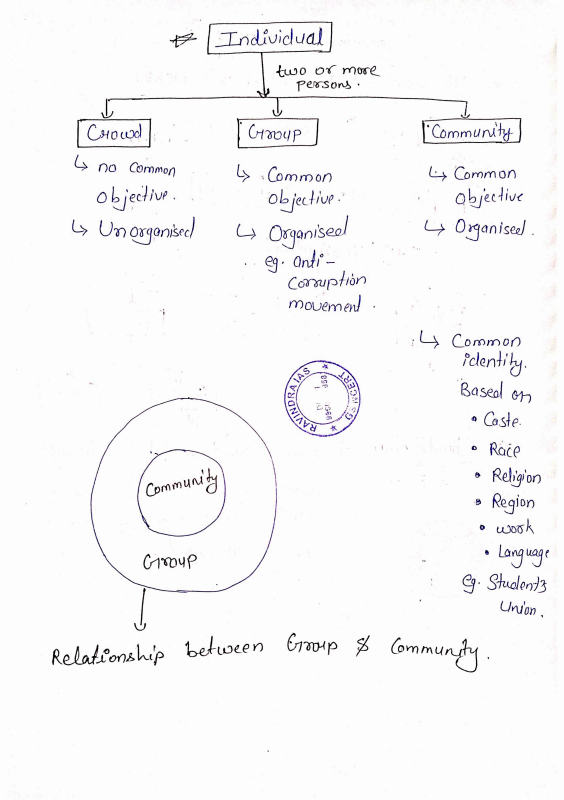 Individual
two or more
persons.
Crowd
↳ no common
objective.
↳ Unorganised
Group
↳ Common
objective.
↳ Organised
eg. anti-
corruption
movement.
Community
↳ Common
objective
↳ Organised.
↳ Common
identity.
Based on
• Caste.
• Race
• Religion
• Region
• work
• Language
eg. Students
Union.
RAVINDRA IAS
Community
Group
Relationship between Group & Community.